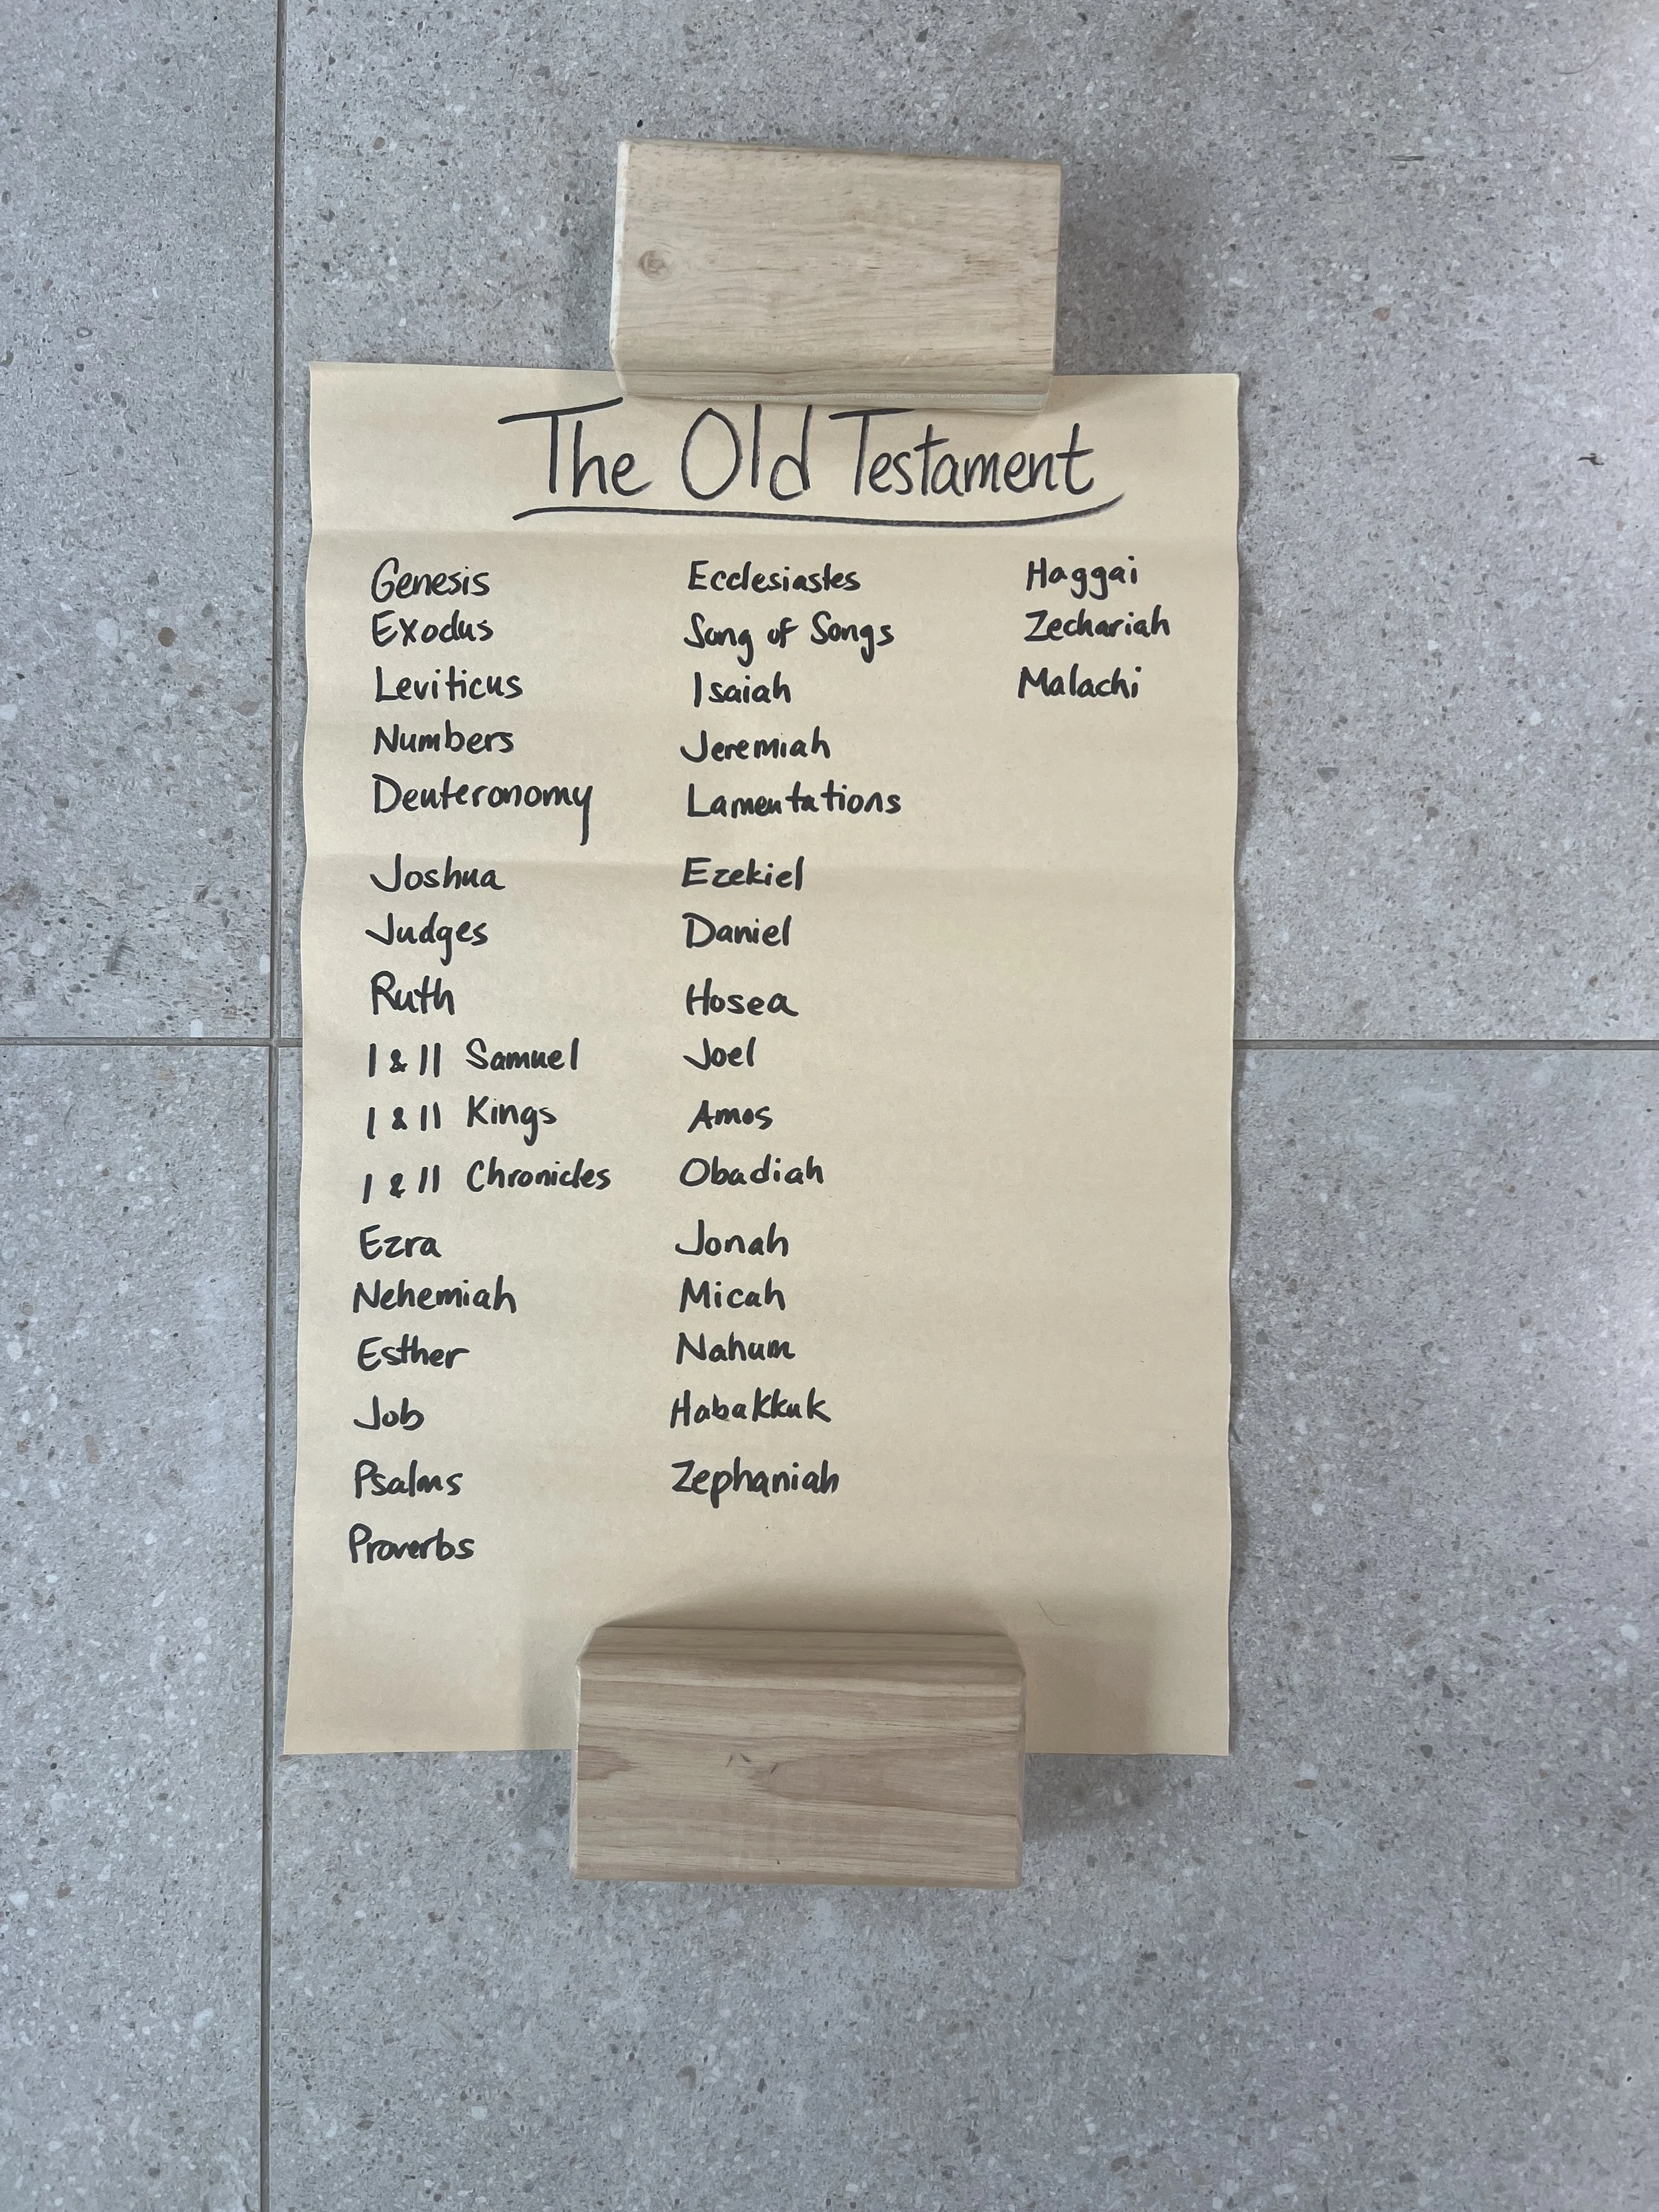 The Old Testament
Genesis
Exodus
Leviticus
Numbers
Deuteronomy
Joshua
Judges
Ruth
I & II Samuel
I & II Kings
I & II Chronicles
Ezra
Nehemiah
Esther
Job
Psalms
Proverbs
Ecclesiastes
Song of Songs
Isaiah
Jeremiah
Lamentations
Ezekiel
Daniel
Hosea
Joel
Amos
Obadiah
Jonah
Micah
Nahum
Habakkuk
Zephaniah
Haggai
Zechariah
Malachi